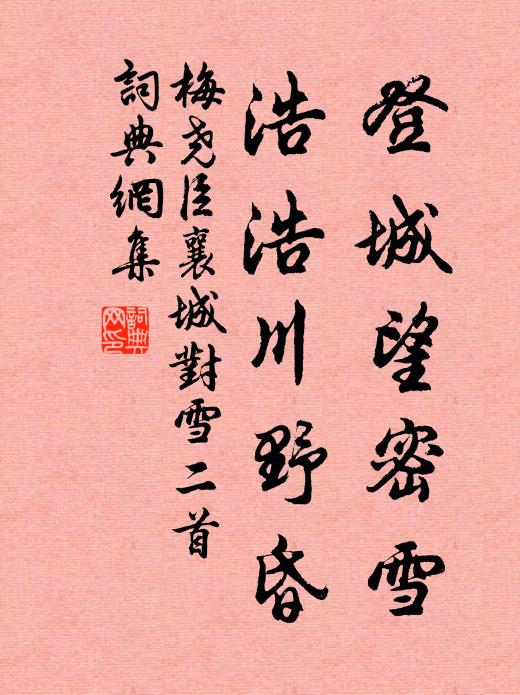 登城望密雪
浩浩川野昏
梅尧臣襄城對雪二首
詞典網集
詞典网印